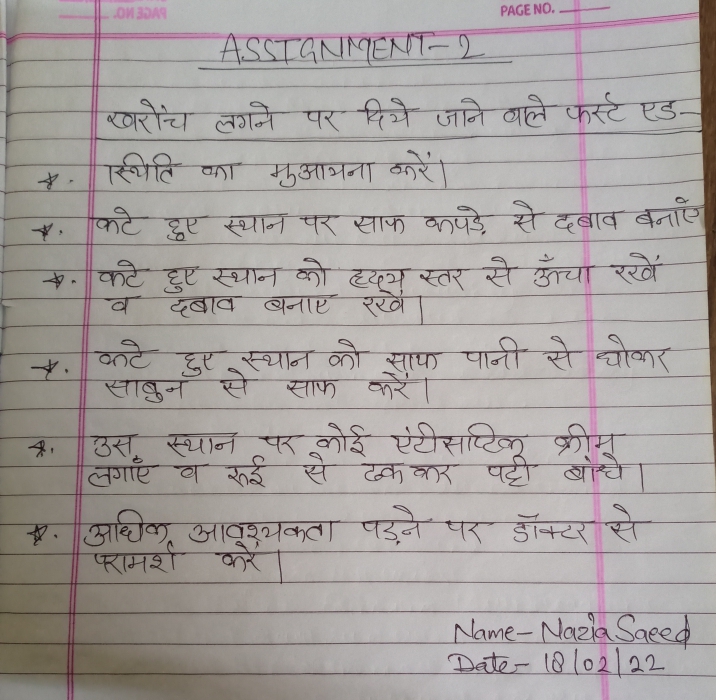 PAGE NO.
PAGE NO.
ASSIGNMENT-2
खरोंच लगने पर दिये जाने वाले फर्स्ट एड-
स्थिति का मुआयना करें।
कटे हुए स्थान पर साफ कपड़े से दबाव बनाएं
कटे हुए स्थान को हृदय स्तर से ऊँचा रखें
व दबाव बनाए रखें।
कटे हुए स्थान को साफ पानी से धोकर
साबुन से साफ करें।
उस स्थान पर कोई एंटीसाप्टिक क्रीम
लगाएं व रूई से ढक कर पट्टी बांधे।
अधिक आवश्यकता पड़ने पर डॉक्टर से
परामर्श करें।
Name- Nazia Saeed
Date- 18/02/22